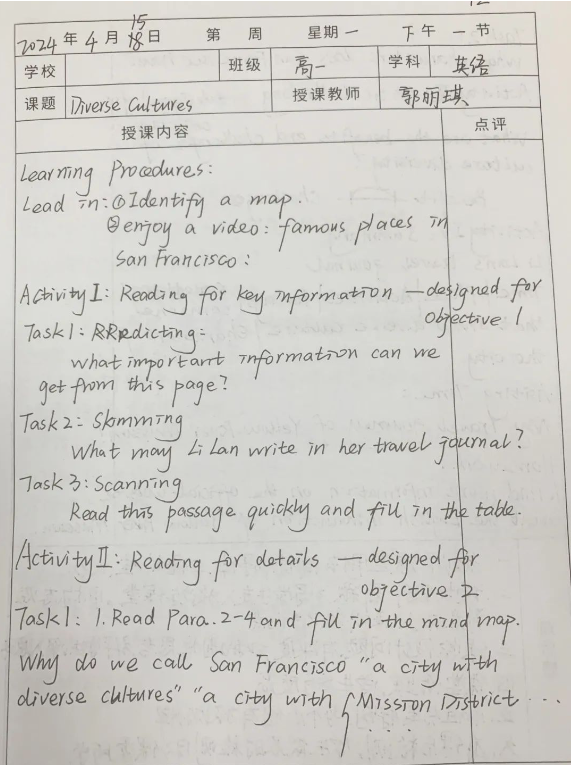 15
2024年4月18日 第 周 星期一 下午一节
学校 班级 高一 学科 英语
课题 Diverse Cultures 授课教师 郭丽琪
授课内容 点评
Learning Procedures:
Lead in: ①Identify a map.
②enjoy a video: famous places in
San Francisco:
Activity I: Reading for key information — designed for
objective 1
Task 1: Predicting:
What important information can we
get from this page?
Task 2: Skimming
What may Li Lan write in her travel journal?
Task 3: Scanning
Read this passage quickly and fill in the table.
Activity II: Reading for details — designed for
objective 2
Task 1: 1. Read Para. 2-4 and fill in the mind map.
Why do we call San Francisco "a city with
diverse cultures" "a city with { Mission District ...
....